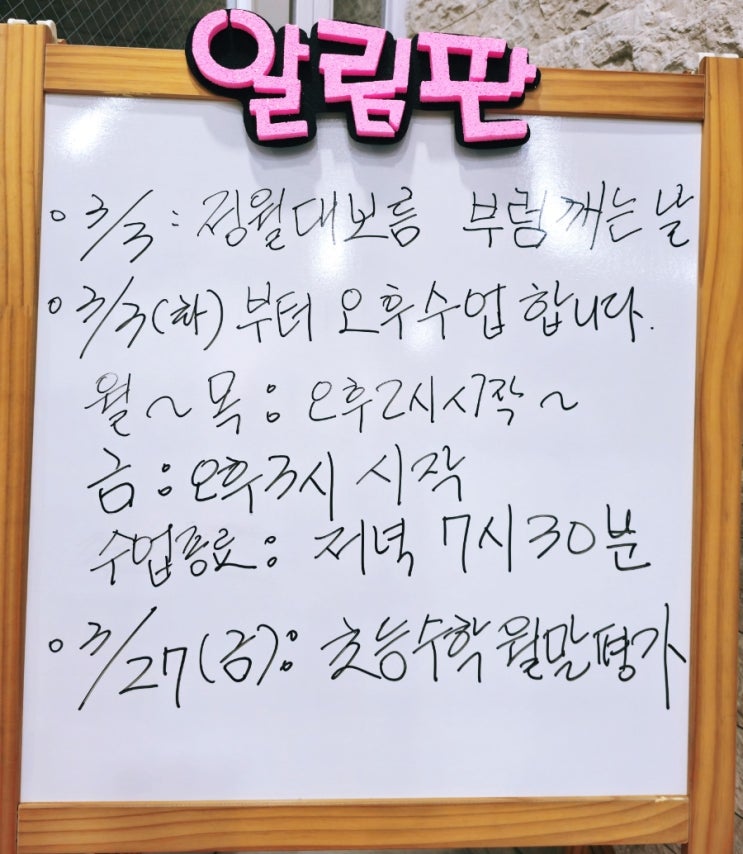 알림판
○ 3/3 : 정월대보름 부럼깨는날
○ 3/3(화)부터 오후수업합니다.
월~목 : 오후2시시작~
금 : 오후3시 시작
수업종료 : 저녁 7시30분
○ 3/27(금) : 초능수학월말평가